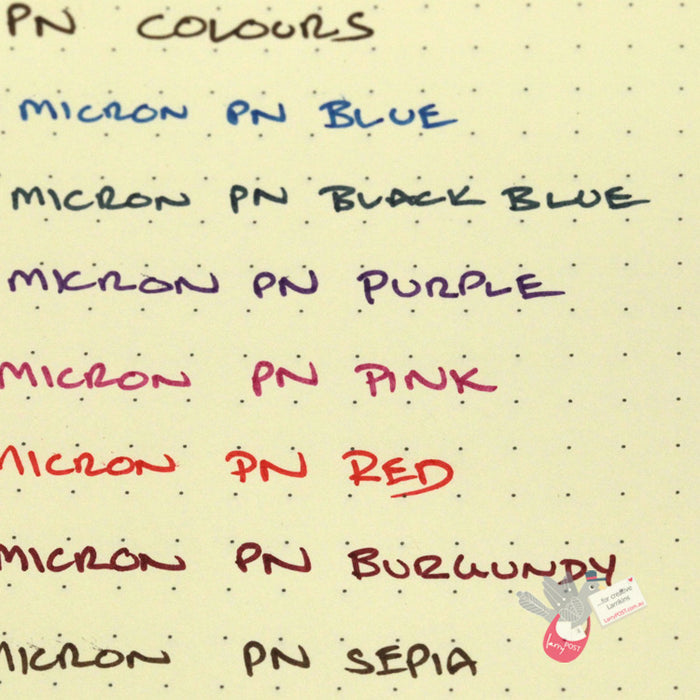 PN COLOURS
MICRON PN BLUE
MICRON PN BLACK BLUE
MICRON PN PURPLE
MICRON PN PINK
MICRON PN RED
MICRON PN BURGUNDY
...for creative
Larrikins
LarryPOST.com.au
larryPOST
MICRON PN SEPIA